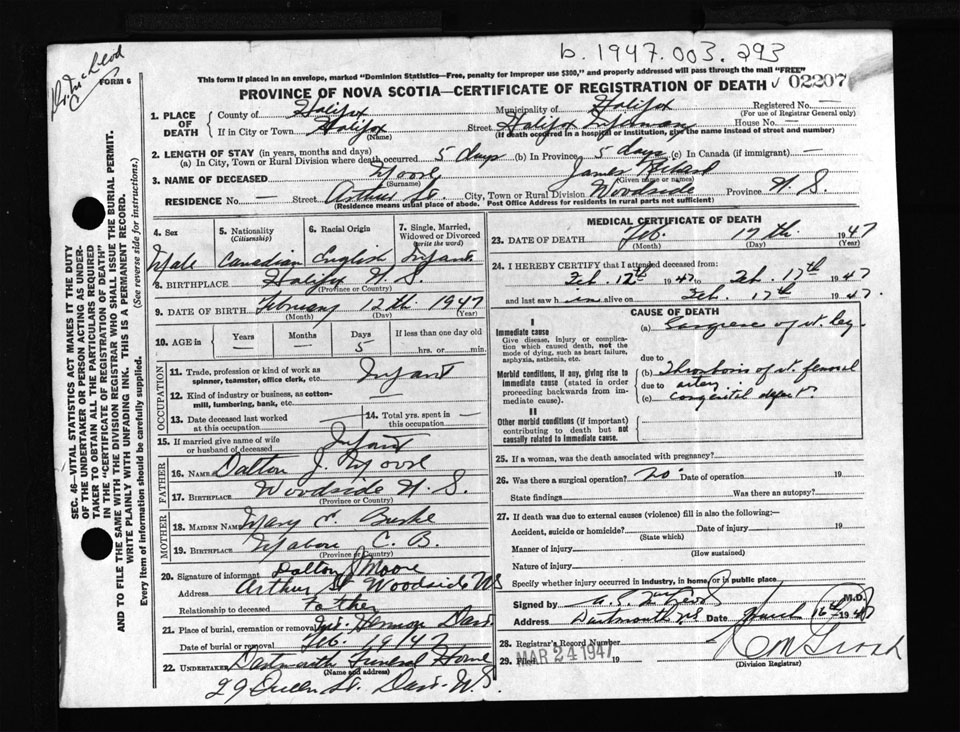 b. 1947.003.293
Dr. McLeod
FORM 6
This form if placed in an envelope, marked "Dominion Statistics—Free, penalty for improper use $300," and properly addressed will pass through the mail "FREE"
PROVINCE OF NOVA SCOTIA—CERTIFICATE OF REGISTRATION OF DEATH 02207
1. PLACE OF DEATH
County of Halifax Municipality of Halifax Registered No. —
(For use of Registrar General only)
If in City or Town Halifax Street Halifax House No. —
(Name) (If death occurred in a hospital or institution, give the name instead of street and number)
2. LENGTH OF STAY (in years, months and days)
(a) In City, Town or Rural Division where death occurred 5 days (b) In Province 5 days (c) In Canada (if immigrant) —
3. NAME OF DECEASED Moore James
(Surname) (Given name or names)
RESIDENCE No. — Street Arthur St. City, Town or Rural Division Woodside Province N. S.
(Residence means usual place of abode. Post Office Address for residents in rural parts not sufficient)
SEC. 46—VITAL STATISTICS ACT MAKES IT THE DUTY
OF THE UNDERTAKER OR PERSON ACTING AS UNDER-
TAKER TO OBTAIN ALL THE PARTICULARS REQUIRED
IN THE "CERTIFICATE OF REGISTRATION OF DEATH"
AND TO FILE THE SAME WITH THE DIVISION REGISTRAR WHO SHALL ISSUE THE BURIAL PERMIT.
WRITE PLAINLY WITH UNFADING INK. THIS IS A PERMANENT RECORD.
Every item of information should be carefully supplied. (See reverse side for instructions.)
4. Sex
Male
5. Nationality
(Citizenship)
Canadian
6. Racial Origin
English
7. Single, Married, Widowed or Divorced
(write the word)
Infant
8. BIRTHPLACE Halifax N. S.
(Province or Country)
9. DATE OF BIRTH February 12th 1947
(Month) (Day) (Year)
10. AGE in Years — Months — Days 5 If less than one day old
hrs. or min.
OCCUPATION
11. Trade, profession or kind of work as
spinner, teamster, office clerk, etc. Infant
12. Kind of industry or business, as cotton-
mill, lumbering, bank, etc. —
13. Date deceased last worked
at this occupation —
14. Total yrs. spent in
this occupation —
15. If married give name of wife
or husband of deceased Infant
FATHER
16. Name Dalton J. Moore
17. Birthplace Woodside N. S.
(Province or Country)
MOTHER
18. MAIDEN NAME Mary C. Burke
19. BIRTHPLACE Mabou C. B.
(Province or Country)
20. Signature of informant Dalton J Moore
Address Arthur St Woodside NS
Relationship to deceased Father
21. Place of burial, cremation or removal Mt. Hermon Dart.
Date of burial or removal Feb. 19/47
22. UNDERTAKER Dartmouth Funeral Home
(Name and address)
29 Queen St. Dart. N.S.
MEDICAL CERTIFICATE OF DEATH
23. DATE OF DEATH Feb. 17th 1947
(Month) (Day) (Year)
24. I HEREBY CERTIFY that I attended deceased from:
Feb. 12th 1947 to Feb. 17th 1947
and last saw him alive on Feb. 17th 1947.
CAUSE OF DEATH
I
Immediate cause
Give disease, injury or complica-
tion which caused death, not the
mode of dying, such as heart failure,
asphyxia, asthenia, etc.
(a) Gangrene of leg
due to
Morbid conditions, if any, giving rise to
immediate cause (stated in order
proceeding backwards from im-
mediate cause).
(b) Thrombosis of femoral
due to artery
(c) congenital
II
Other morbid conditions (if important)
contributing to death but not
causally related to immediate cause.
25. If a woman, was the death associated with pregnancy?
26. Was there a surgical operation? no Date of operation 19
State findings Was there an autopsy?
27. If death was due to external causes (violence) fill in also the following:—
Accident, suicide or homicide? Date of injury 19
(State which)
Manner of injury
(How sustained)
Nature of injury
Specify whether injury occurred in industry, in home or in public place.
Signed by M.D.
Address Dartmouth NS Date March 16th 1947
28. Registrar's Record Number
29. Filed MAR 24 1947 19
(Division Registrar)